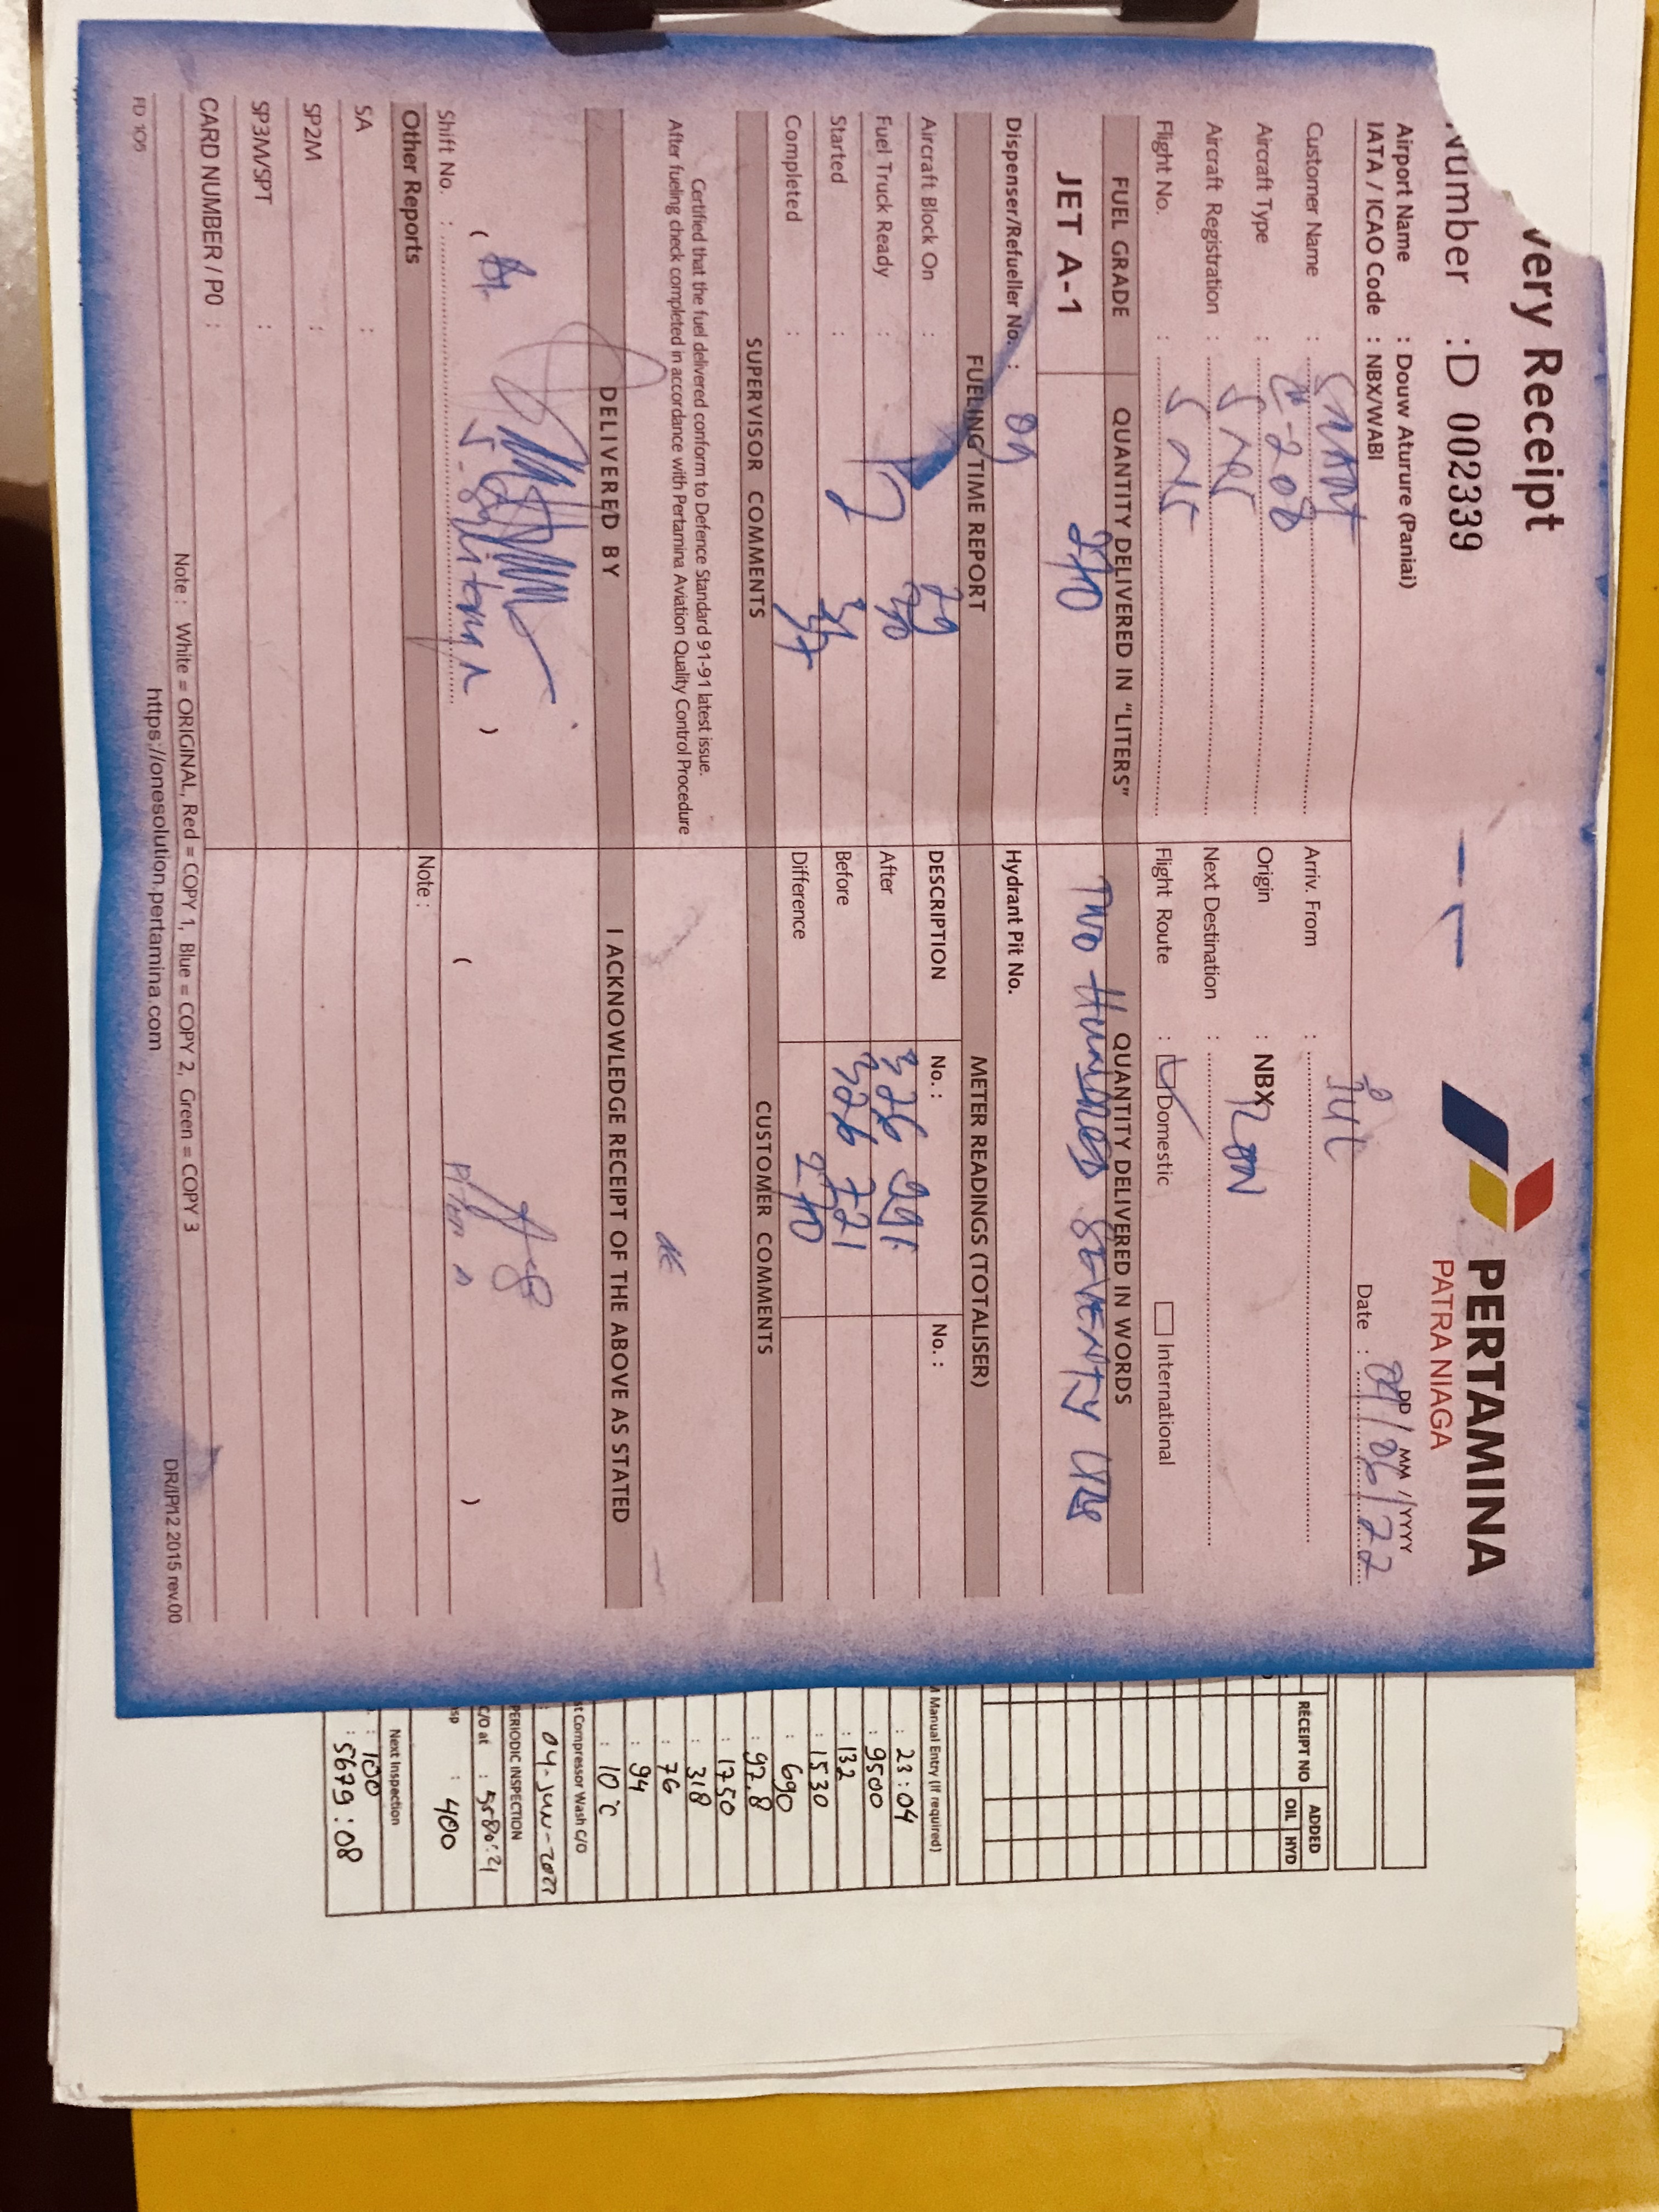 very Receipt
PERTAMINA
PATRA NIAGA
Number : D 002339
DD MM /YYYY
Airport Name : Douw Aturure (Paniai)
Date : 04/06/22
IATA / ICAO Code : NBX/WABI
Customer Name : SMART
Arriv. From :
Aircraft Type : C-208
Origin : NBX
Aircraft Registration :
Next Destination :
Flight No. :
Flight Route : Domestic International
FUEL GRADE
QUANTITY DELIVERED IN "LITERS"
QUANTITY DELIVERED IN WORDS
JET A-1
270
TWO HUNDRED SEVENTY
Dispenser/Refueller No. : 09
Hydrant Pit No.
FUELING TIME REPORT
METER READINGS (TOTALISER)
Aircraft Block On : 29
DESCRIPTION
No. :
No. :
Fuel Truck Ready : 30
After
326 991
Started :
Before
326 721
Completed : 37
Difference
270
SUPERVISOR COMMENTS
CUSTOMER COMMENTS
Certified that the fuel delivered conform to Defence Standard 91-91 latest issue.
After fueling check completed in accordance with Pertamina Aviation Quality Control Procedure
DELIVERED BY
I ACKNOWLEDGE RECEIPT OF THE ABOVE AS STATED
( )
( )
Shift No. :
Other Reports
Note :
SA :
SP2M :
SP3M/SPT :
CARD NUMBER / PO :
Note : White = ORIGINAL, Red = COPY 1, Blue = COPY 2, Green = COPY 3
https://onesolution.pertamina.com
DR/IP/12.2015 rev.00
RECEIPT NO
ADDED
OIL HYD
M Manual Entry (If required)
: 23:04
: 9500
: 132
: 1530
: 690
: 92.8
: 1750
: 318
: 76
: 94
: 10°C
st Compressor Wash C/O
: 04-JUN-2022
PERIODIC INSPECTION
C/O at : 5580:21
sp : 400
Next Inspection
: 100
: 5679:08